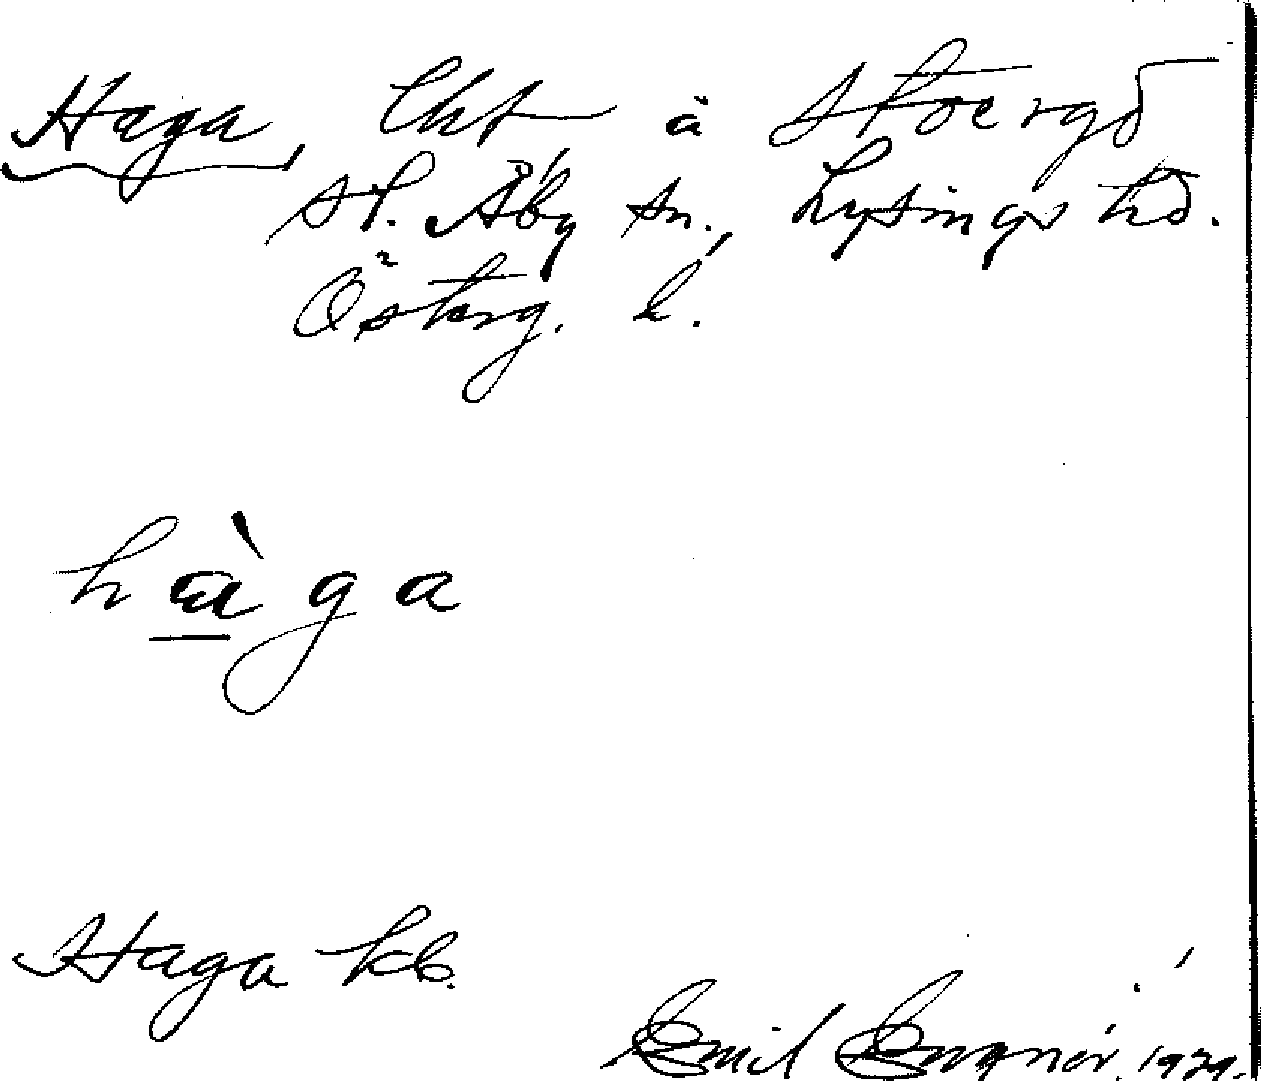 Haga, lht å Stoergd
St. Åby sn., Lysings hd.
Österg. l.
hàga
Haga kb.
Emil 1929.